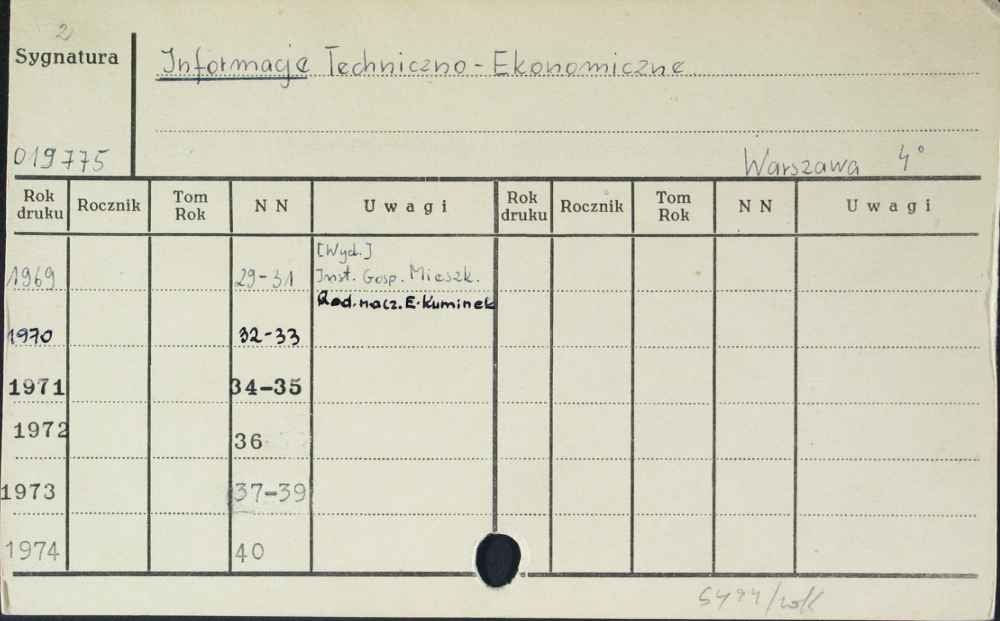 2
Sygnatura
Informacje Techniczno-Ekonomiczne
019775
Warszawa 4°
Rok druku Rocznik Tom Rok N N Uwagi Rok druku Rocznik Tom Rok N N Uwagi
[Wyd.]
1969 29-31 Inst. Gosp. Mieszk.
Red. nacz. E. Kuminek
1970 32-33
1971 34-35
1972 36
1973 37-39
1974 40